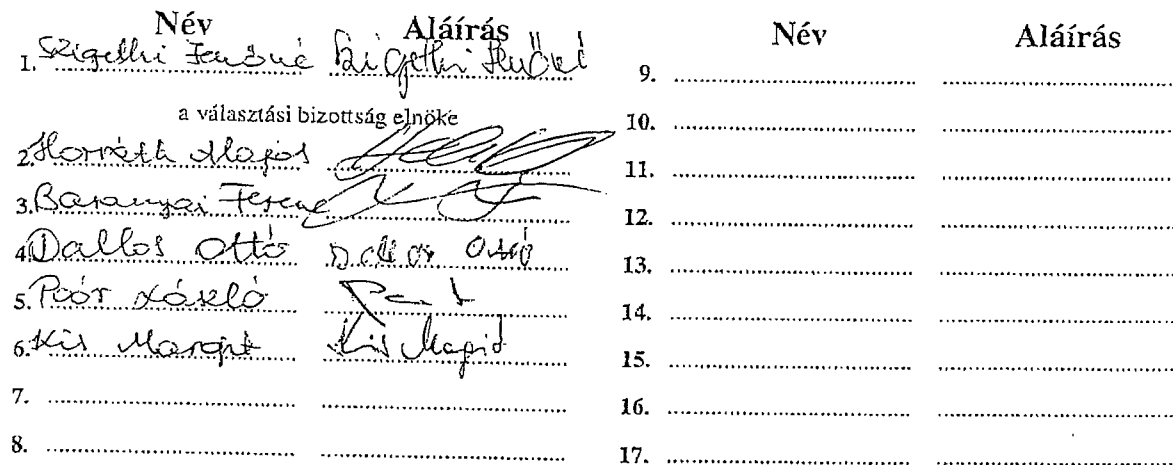 Név Aláírás
1. Szigethi Jenőné Szigethi Jenőné
a választási bizottság elnöke
2. Horváth Alajos
3. Baranyai Ferenc
4. Dallos Ottó Dallos Ottó
5. Poór László
6. Kis Margit Kis Margit
7.
8.
Név Aláírás
9.
10.
11.
12.
13.
14.
15.
16.
17.